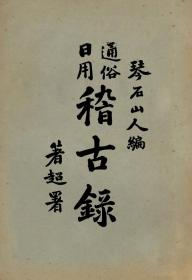 琴石山人編
通俗
日用
稽古錄
著超署